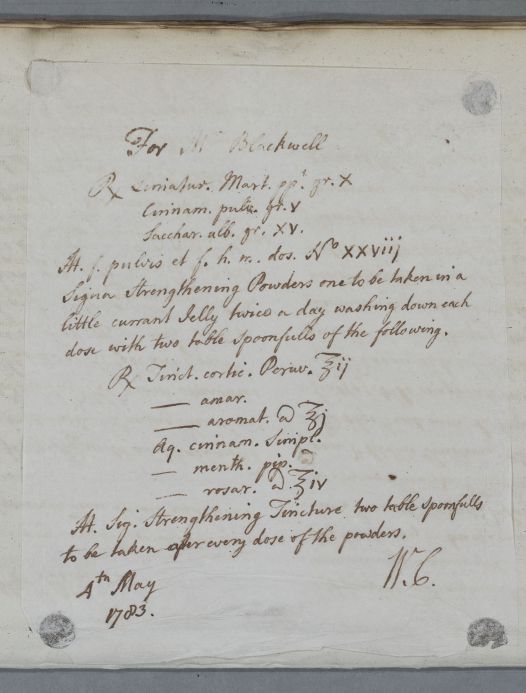 For Mr Blackwell
℞ Limatur. Mart. ppt. gr. X
Cinnam. pulv. gr. V
Sacchar. alb. gr. XV.
M. f. pulvis et f. h. m. dos. No XXViij
Signa Strengthening Powders one to be taken in a
little currant Jelly twice a day washing down each
dose with two table spoonfulls of the following.
℞ Tinct. cortic. Peruv. ℥ij
— amar.
— aromat. a ℥j
Aq. cinnam. Simpl.
— menth. pip.
— rosar. a ℥iv
M. Sig. Strengthening Tincture two table spoonfulls
to be taken after every dose of the powders.
W. C.
4th May
1783.